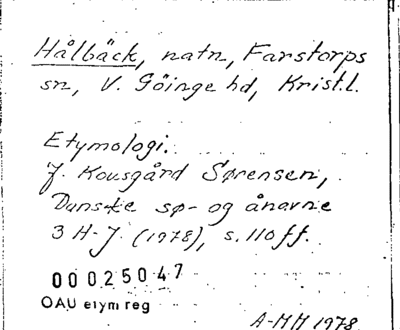 Hålbäck, natn, Farstorps
sn, V. Göinge hd, Krist.l.
Etymologi.
J. Kousgård Sørensen,
Danske sø- og ånavne
3 H-J. (1978), s. 110 ff.
00025047
OAU etym reg
A-MM 1978